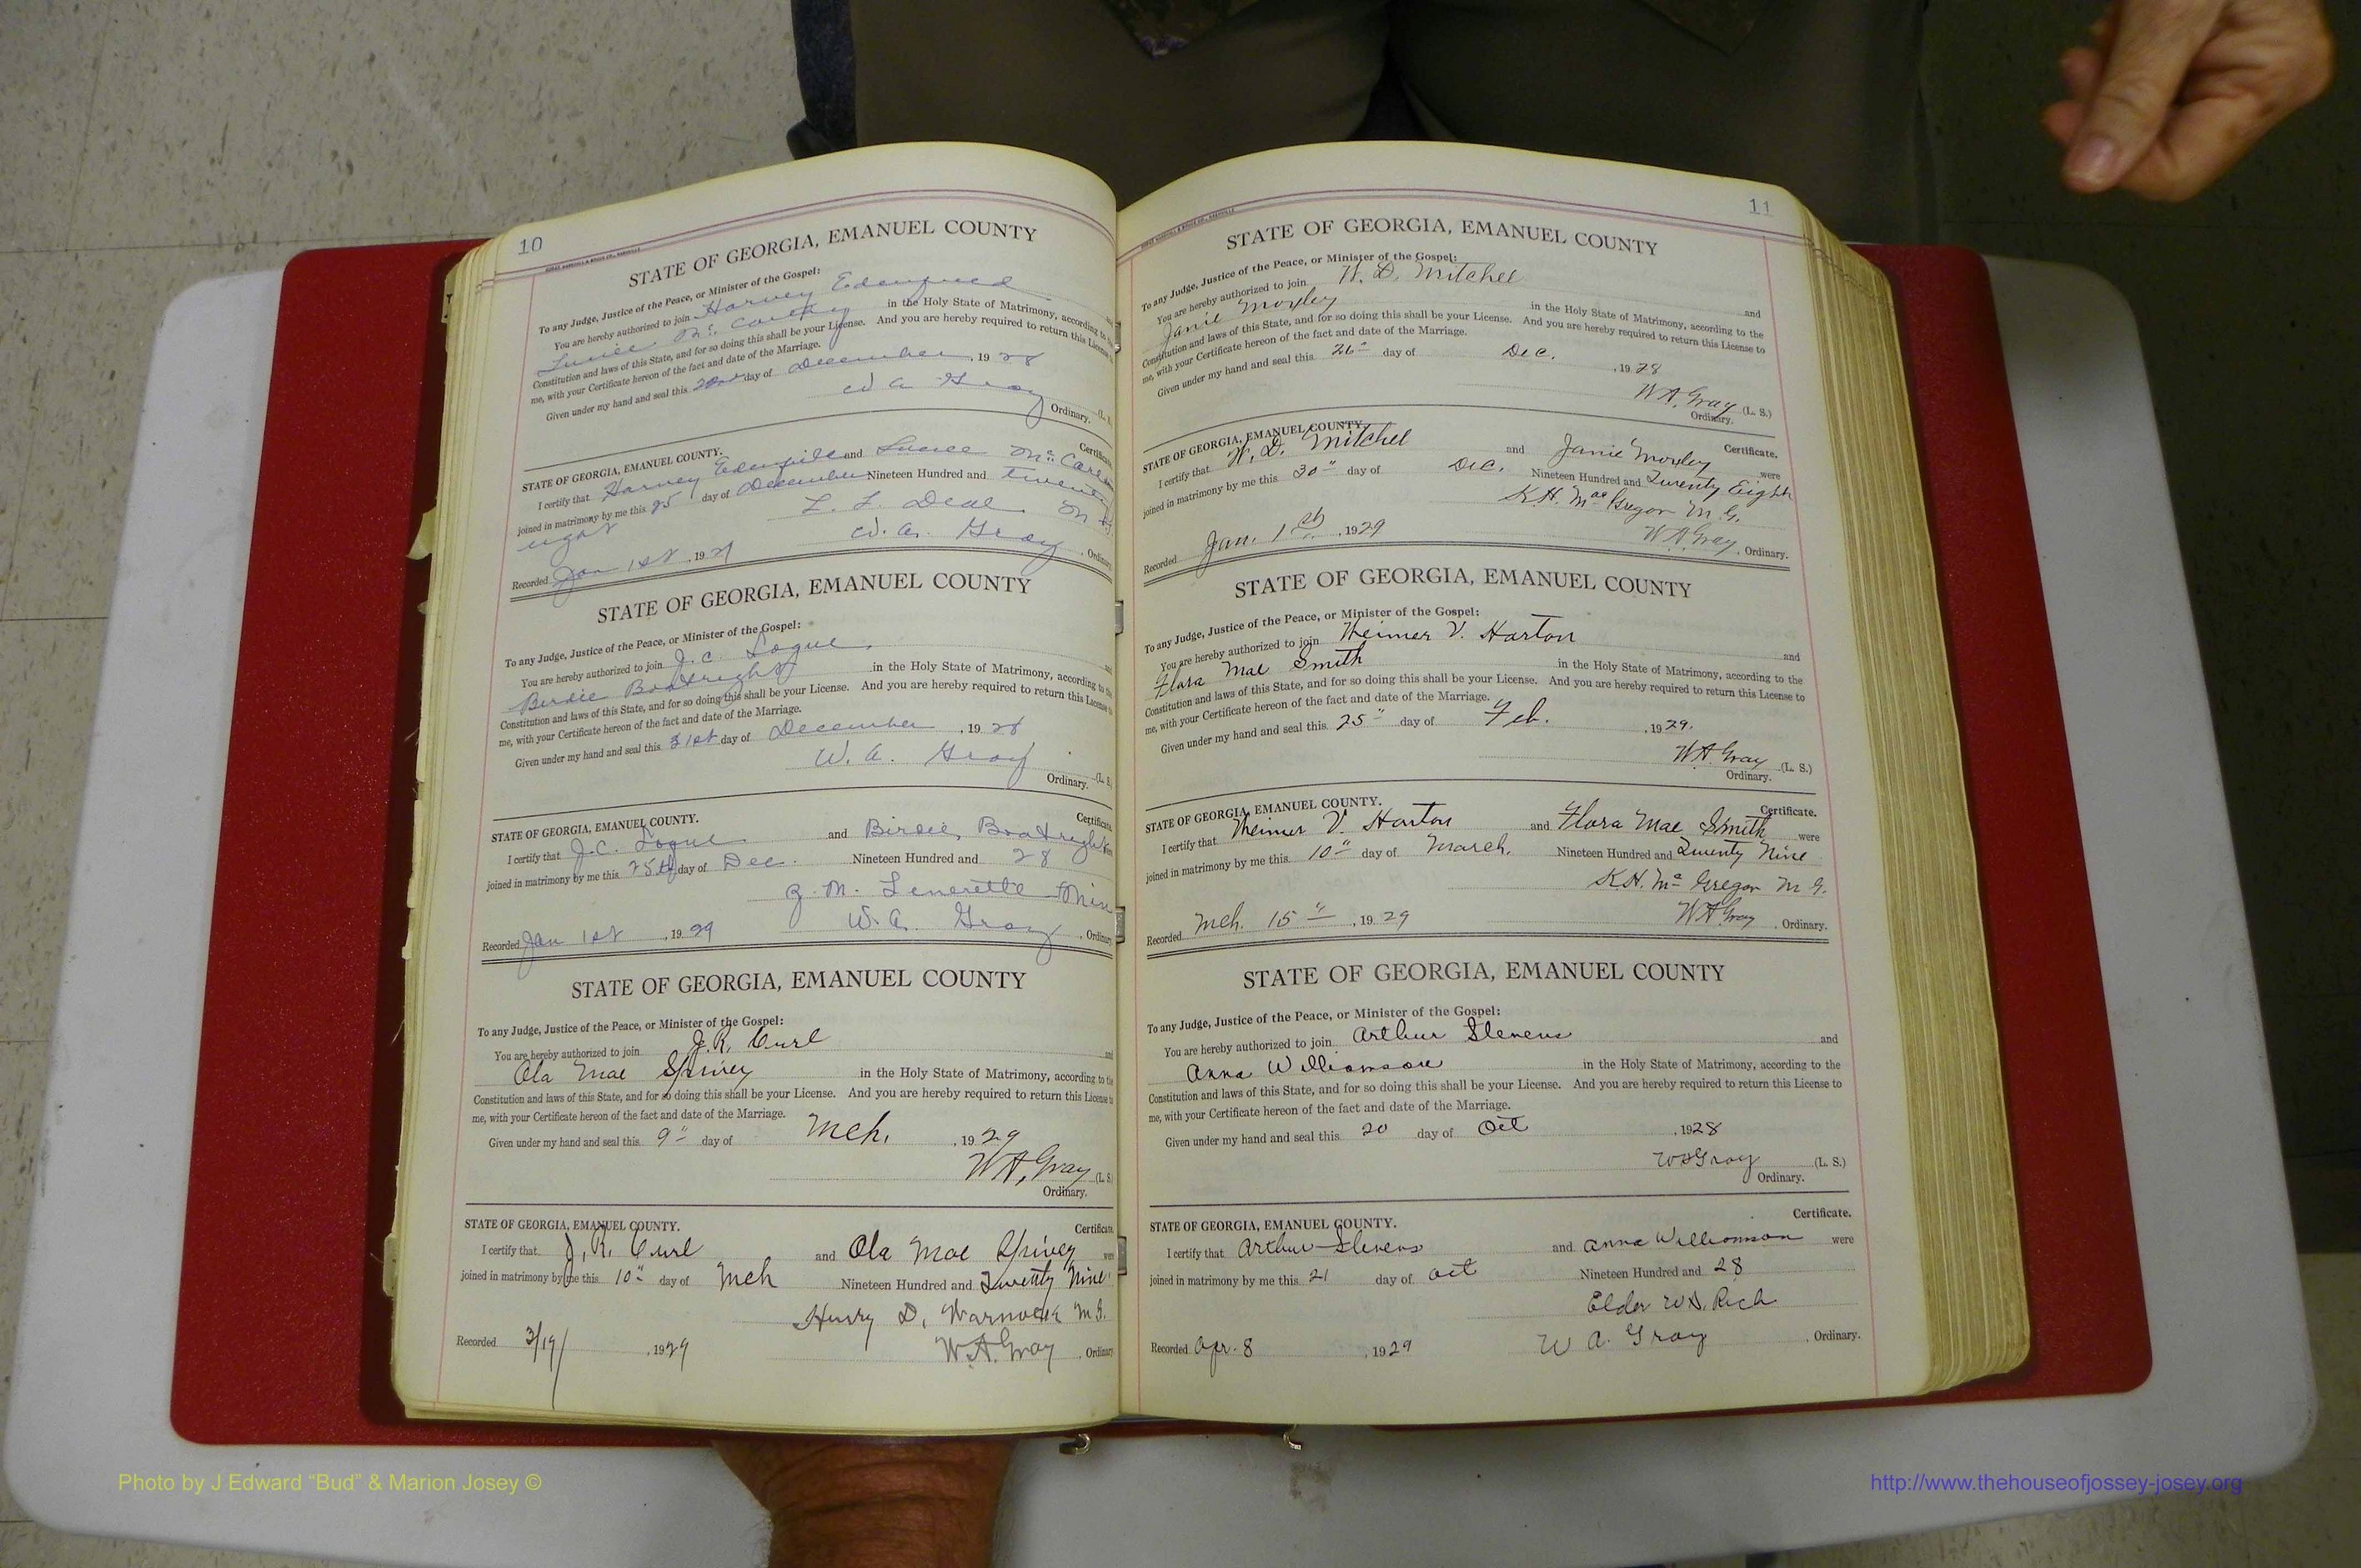 10
STATE OF GEORGIA, EMANUEL COUNTY
To any Judge, Justice of the Peace, or Minister of the Gospel:
You are hereby authorized to join Harvey Edenfield
Lucile McCarthy in the Holy State of Matrimony, according to
Constitution and laws of this State, and for so doing this shall be your License. And you are hereby required to return this License
me, with your Certificate hereon of the fact and date of the Marriage.
Given under my hand and seal this day of December, 1928
W A Gray (L.
Ordinary.
STATE OF GEORGIA, EMANUEL COUNTY. Certificate
I certify that Harvey Edenfield and
joined in matrimony by me this 25 day of December Nineteen Hundred and twenty
eight L. L. Deal M G
Recorded Jan 1st, 19 W. A. Gray, Ordinary
STATE OF GEORGIA, EMANUEL COUNTY
To any Judge, Justice of the Peace, or Minister of the Gospel:
You are hereby authorized to join J. C. Logue,
Birdie Boatright in the Holy State of Matrimony, according to the
Constitution and laws of this State, and for so doing this shall be your License. And you are hereby required to return this License
me, with your Certificate hereon of the fact and date of the Marriage.
Given under my hand and seal this day of December, 1928
W. A. Gray (L. S
Ordinary.
STATE OF GEORGIA, EMANUEL COUNTY. Certificate
I certify that J. C. Logue and Birdie Boatright
joined in matrimony by me this 25th day of Dec. Nineteen Hundred and 28
M. Lenerette Min
Recorded Jan 1st, 1929 W. A. Gray, Ordinary
STATE OF GEORGIA, EMANUEL COUNTY
To any Judge, Justice of the Peace, or Minister of the Gospel:
You are hereby authorized to join J. R. Curl and
Ola Mae Spivey in the Holy State of Matrimony, according to the
Constitution and laws of this State, and for so doing this shall be your License. And you are hereby required to return this License to
me, with your Certificate hereon of the fact and date of the Marriage.
Given under my hand and seal this 9" day of Mch., 1929
W. A. Gray (L. S
Ordinary.
STATE OF GEORGIA, EMANUEL COUNTY. Certificate
I certify that J. R. Curl and Ola Mae Spivey were
joined in matrimony by me this 10" day of Mch Nineteen Hundred and Twenty Nine
Henry D. Warnock M. G.
Recorded 3/19/, 1929 W. A. Gray, Ordinary
11
STATE OF GEORGIA, EMANUEL COUNTY
To any Judge, Justice of the Peace, or Minister of the Gospel:
You are hereby authorized to join W. D. Mitchel and
Janie Moxley in the Holy State of Matrimony, according to the
Constitution and laws of this State, and for so doing this shall be your License. And you are hereby required to return this License to
me, with your Certificate hereon of the fact and date of the Marriage.
Given under my hand and seal this 26" day of Dec., 1928
W. A. Gray (L. S.)
Ordinary.
STATE OF GEORGIA, EMANUEL COUNTY. Certificate.
I certify that W. D. Mitchel and Janie Moxley were
joined in matrimony by me this 30" day of Dec. Nineteen Hundred and Twenty Eight
K. H. McGregor M. G.
Recorded Jan. 1st, 1929 W A Gray, Ordinary.
STATE OF GEORGIA, EMANUEL COUNTY
To any Judge, Justice of the Peace, or Minister of the Gospel:
You are hereby authorized to join Weimer V. Horton and
Flora Mae Smith in the Holy State of Matrimony, according to the
Constitution and laws of this State, and for so doing this shall be your License. And you are hereby required to return this License to
me, with your Certificate hereon of the fact and date of the Marriage.
Given under my hand and seal this 25" day of Feb., 1929.
W. A. Gray (L. S.)
Ordinary.
STATE OF GEORGIA, EMANUEL COUNTY. Certificate.
I certify that Weimer V. Horton and Flora Mae Smith were
joined in matrimony by me this 10" day of March, Nineteen Hundred and Twenty Nine
K. H. McGregor M G.
Recorded Mch. 15", 1929 W A Gray, Ordinary.
STATE OF GEORGIA, EMANUEL COUNTY
To any Judge, Justice of the Peace, or Minister of the Gospel:
You are hereby authorized to join Arthur Stevens and
Anna Williamson in the Holy State of Matrimony, according to the
Constitution and laws of this State, and for so doing this shall be your License. And you are hereby required to return this License to
me, with your Certificate hereon of the fact and date of the Marriage.
Given under my hand and seal this 20 day of Oct, 1928
W A Gray (L. S.)
Ordinary.
STATE OF GEORGIA, EMANUEL COUNTY. Certificate.
I certify that Arthur Stevens and Anna Williamson were
joined in matrimony by me this 21 day of Oct Nineteen Hundred and 28
Elder Rich
Recorded Apr. 8, 1929 W A. Gray, Ordinary.
Photo by J Edward “Bud” & Marion Josey ©
http://www.thehouseofjossey-josey.org